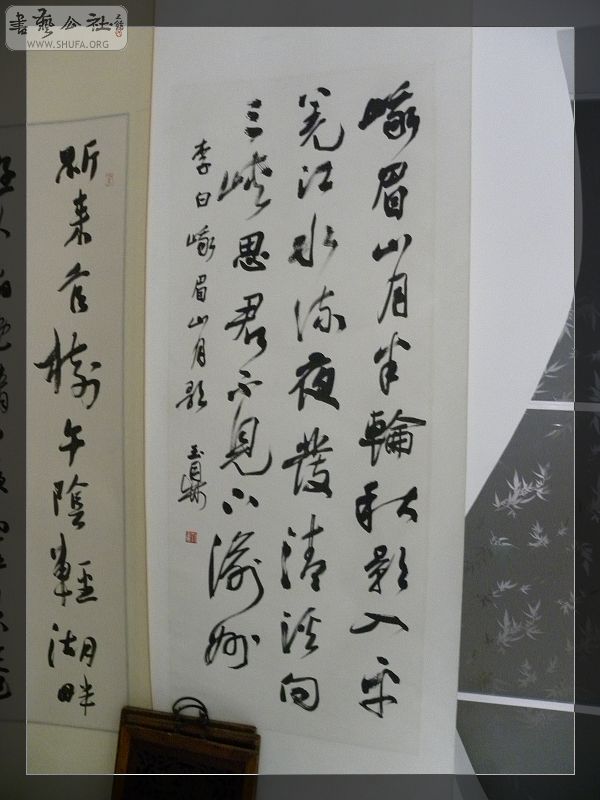 書藝公社
WWW.SHUFA.ORG
峨眉山月半輪秋影入平
羌江水流夜發清溪向
三峽思君不見下渝州
李白峨眉山月歌
来官樹午陰輕湖畔
人晚晴